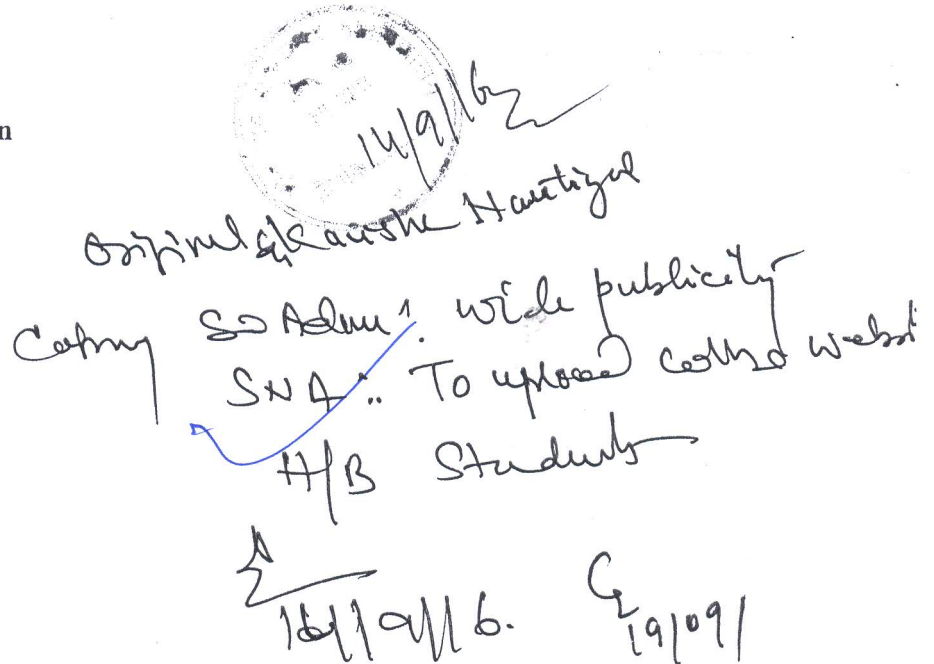 n
14/9/16
Original
Copy SO Admn: wide publicity
SNA: To upload college websi
H/B Students
16/9/16.
19/09/